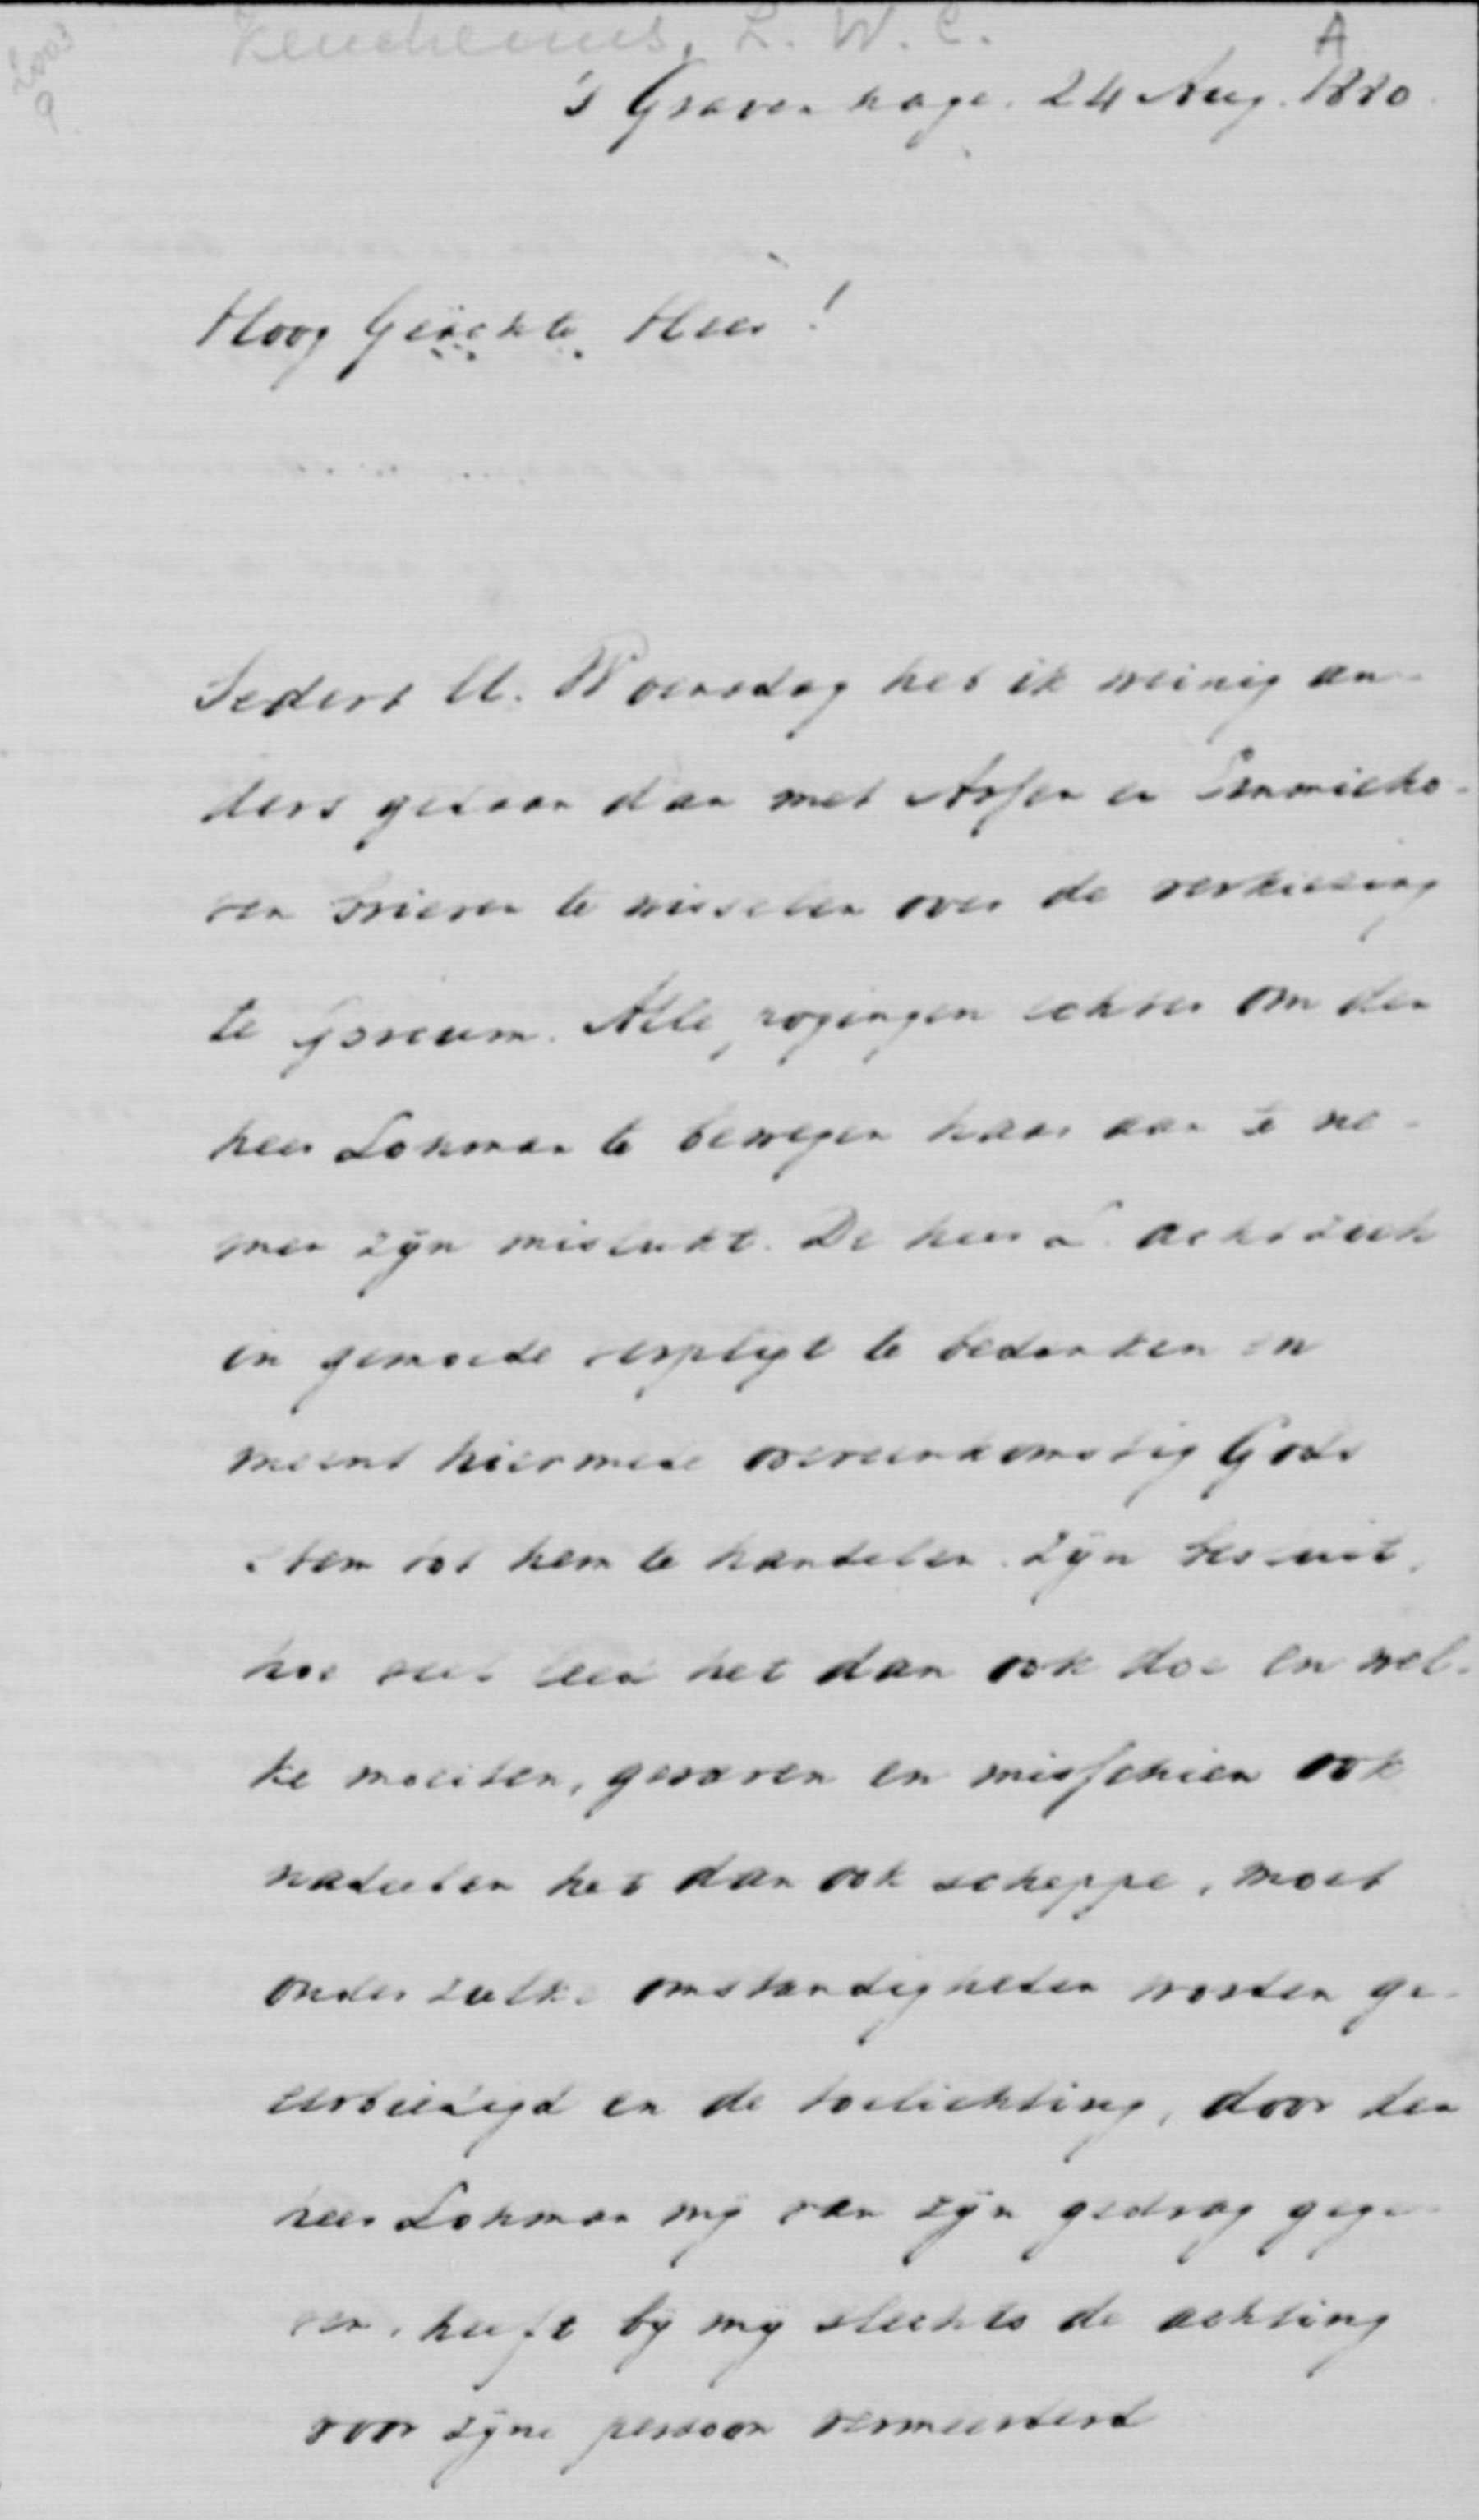 Keuchenius, L. W. C.
A
's Gravenhage. 24 Aug. 1880.
Hoog Geachte Heer!
Sedert ll. Woensdag heb ik weinig an-
ders gedaan dan met Asser en Emmickho-
ven brieven te wisselen over de verkiezing
te Gorcum. Alle pogingen echter om den
heer Lohman te bewegen haar aan te ne-
men zijn mislukt. De heer L. acht zich
in gemoede verpligt te bedanken en
meent hiermede overeenkomstig Gods
stem tot hem te handelen. Zijn besluit,
hoe veel leed het dan ook doe en wel-
ke moeiten, gevaren en misschien ook
nadeelen het dan ook scheppe, moet
onder zulke omstandigheden worden ge-
eerbiedigd en de toelichting, door den
heer Lohman mij van zijn gedrag gege-
ven, heeft bij mij slechts de achting
voor zijne persoon vermeerderd